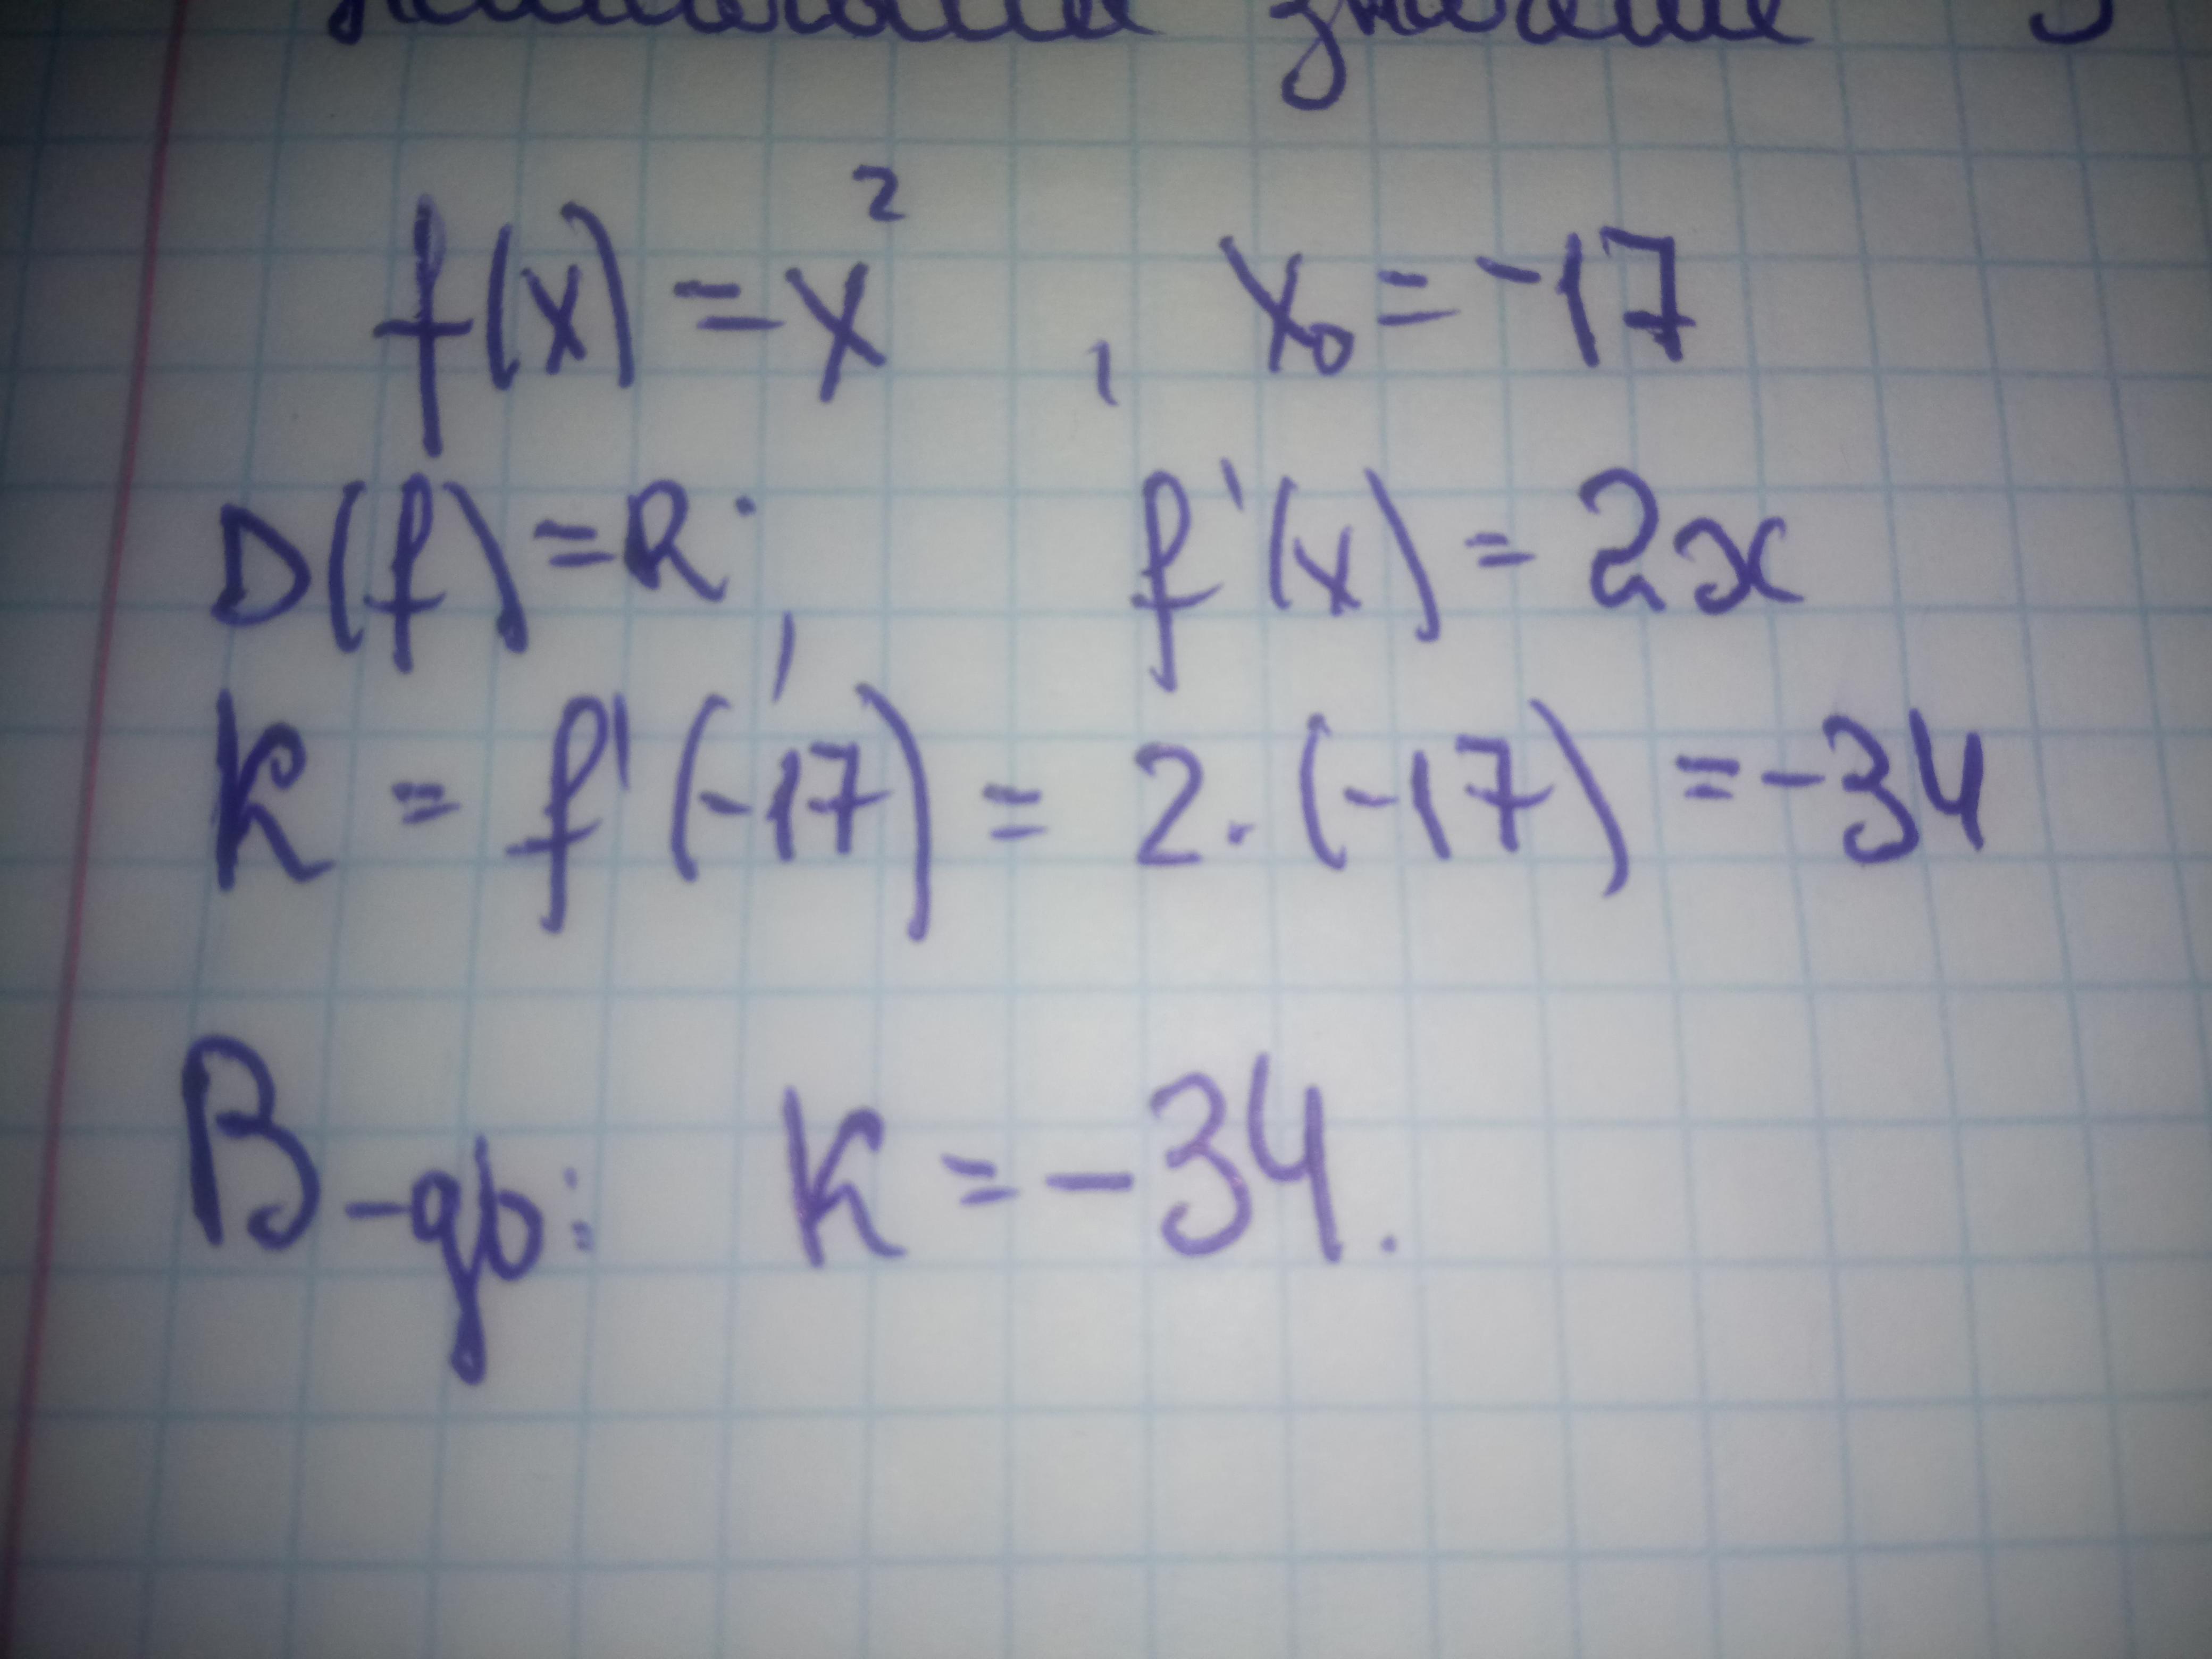 f(x) = x², x₀ = -17
D(f) = R; f'(x) = 2x
K = f'(-17) = 2·(-17) = -34
В-дь: K = -34.